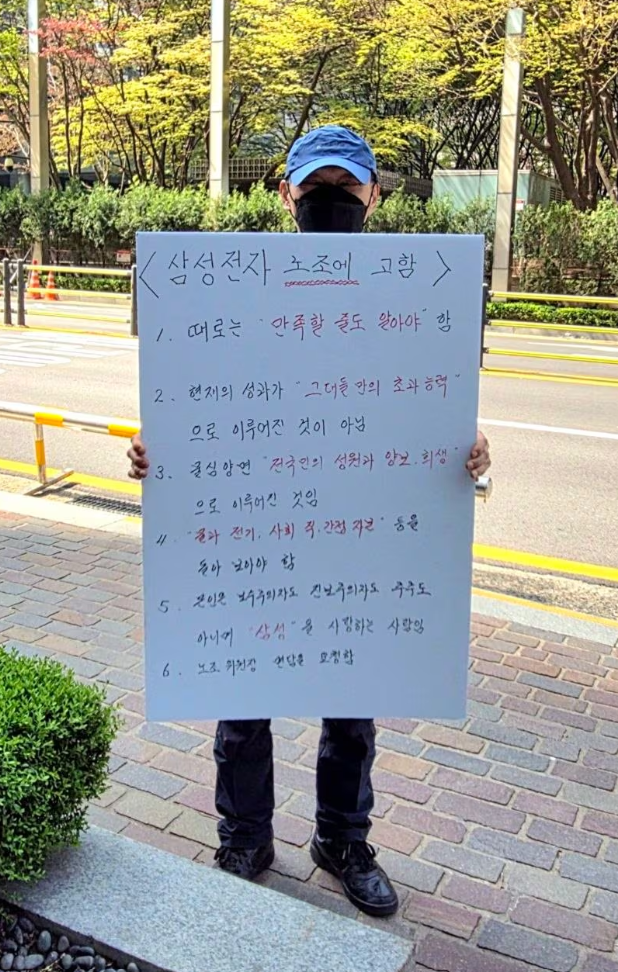 < 삼성전자 노조에 고함 >
1. 때로는 "만족할 줄도 알아야" 함
2. 현재의 성과가 "그대들만의 초과능력"
으로 이루어진 것이 아님
3. 공심양면 "전국민의 성원과 양보, 희생"
으로 이루어진 것임
4. "물과 전기, 사회 직,간접 자본" 등을
돌아 보아야 함
5. 본인은 보수주의자도 진보주의자도 주주도
아니며 "삼성"을 사랑하는 사람임
6. 노조 위원장 면담을 요청함